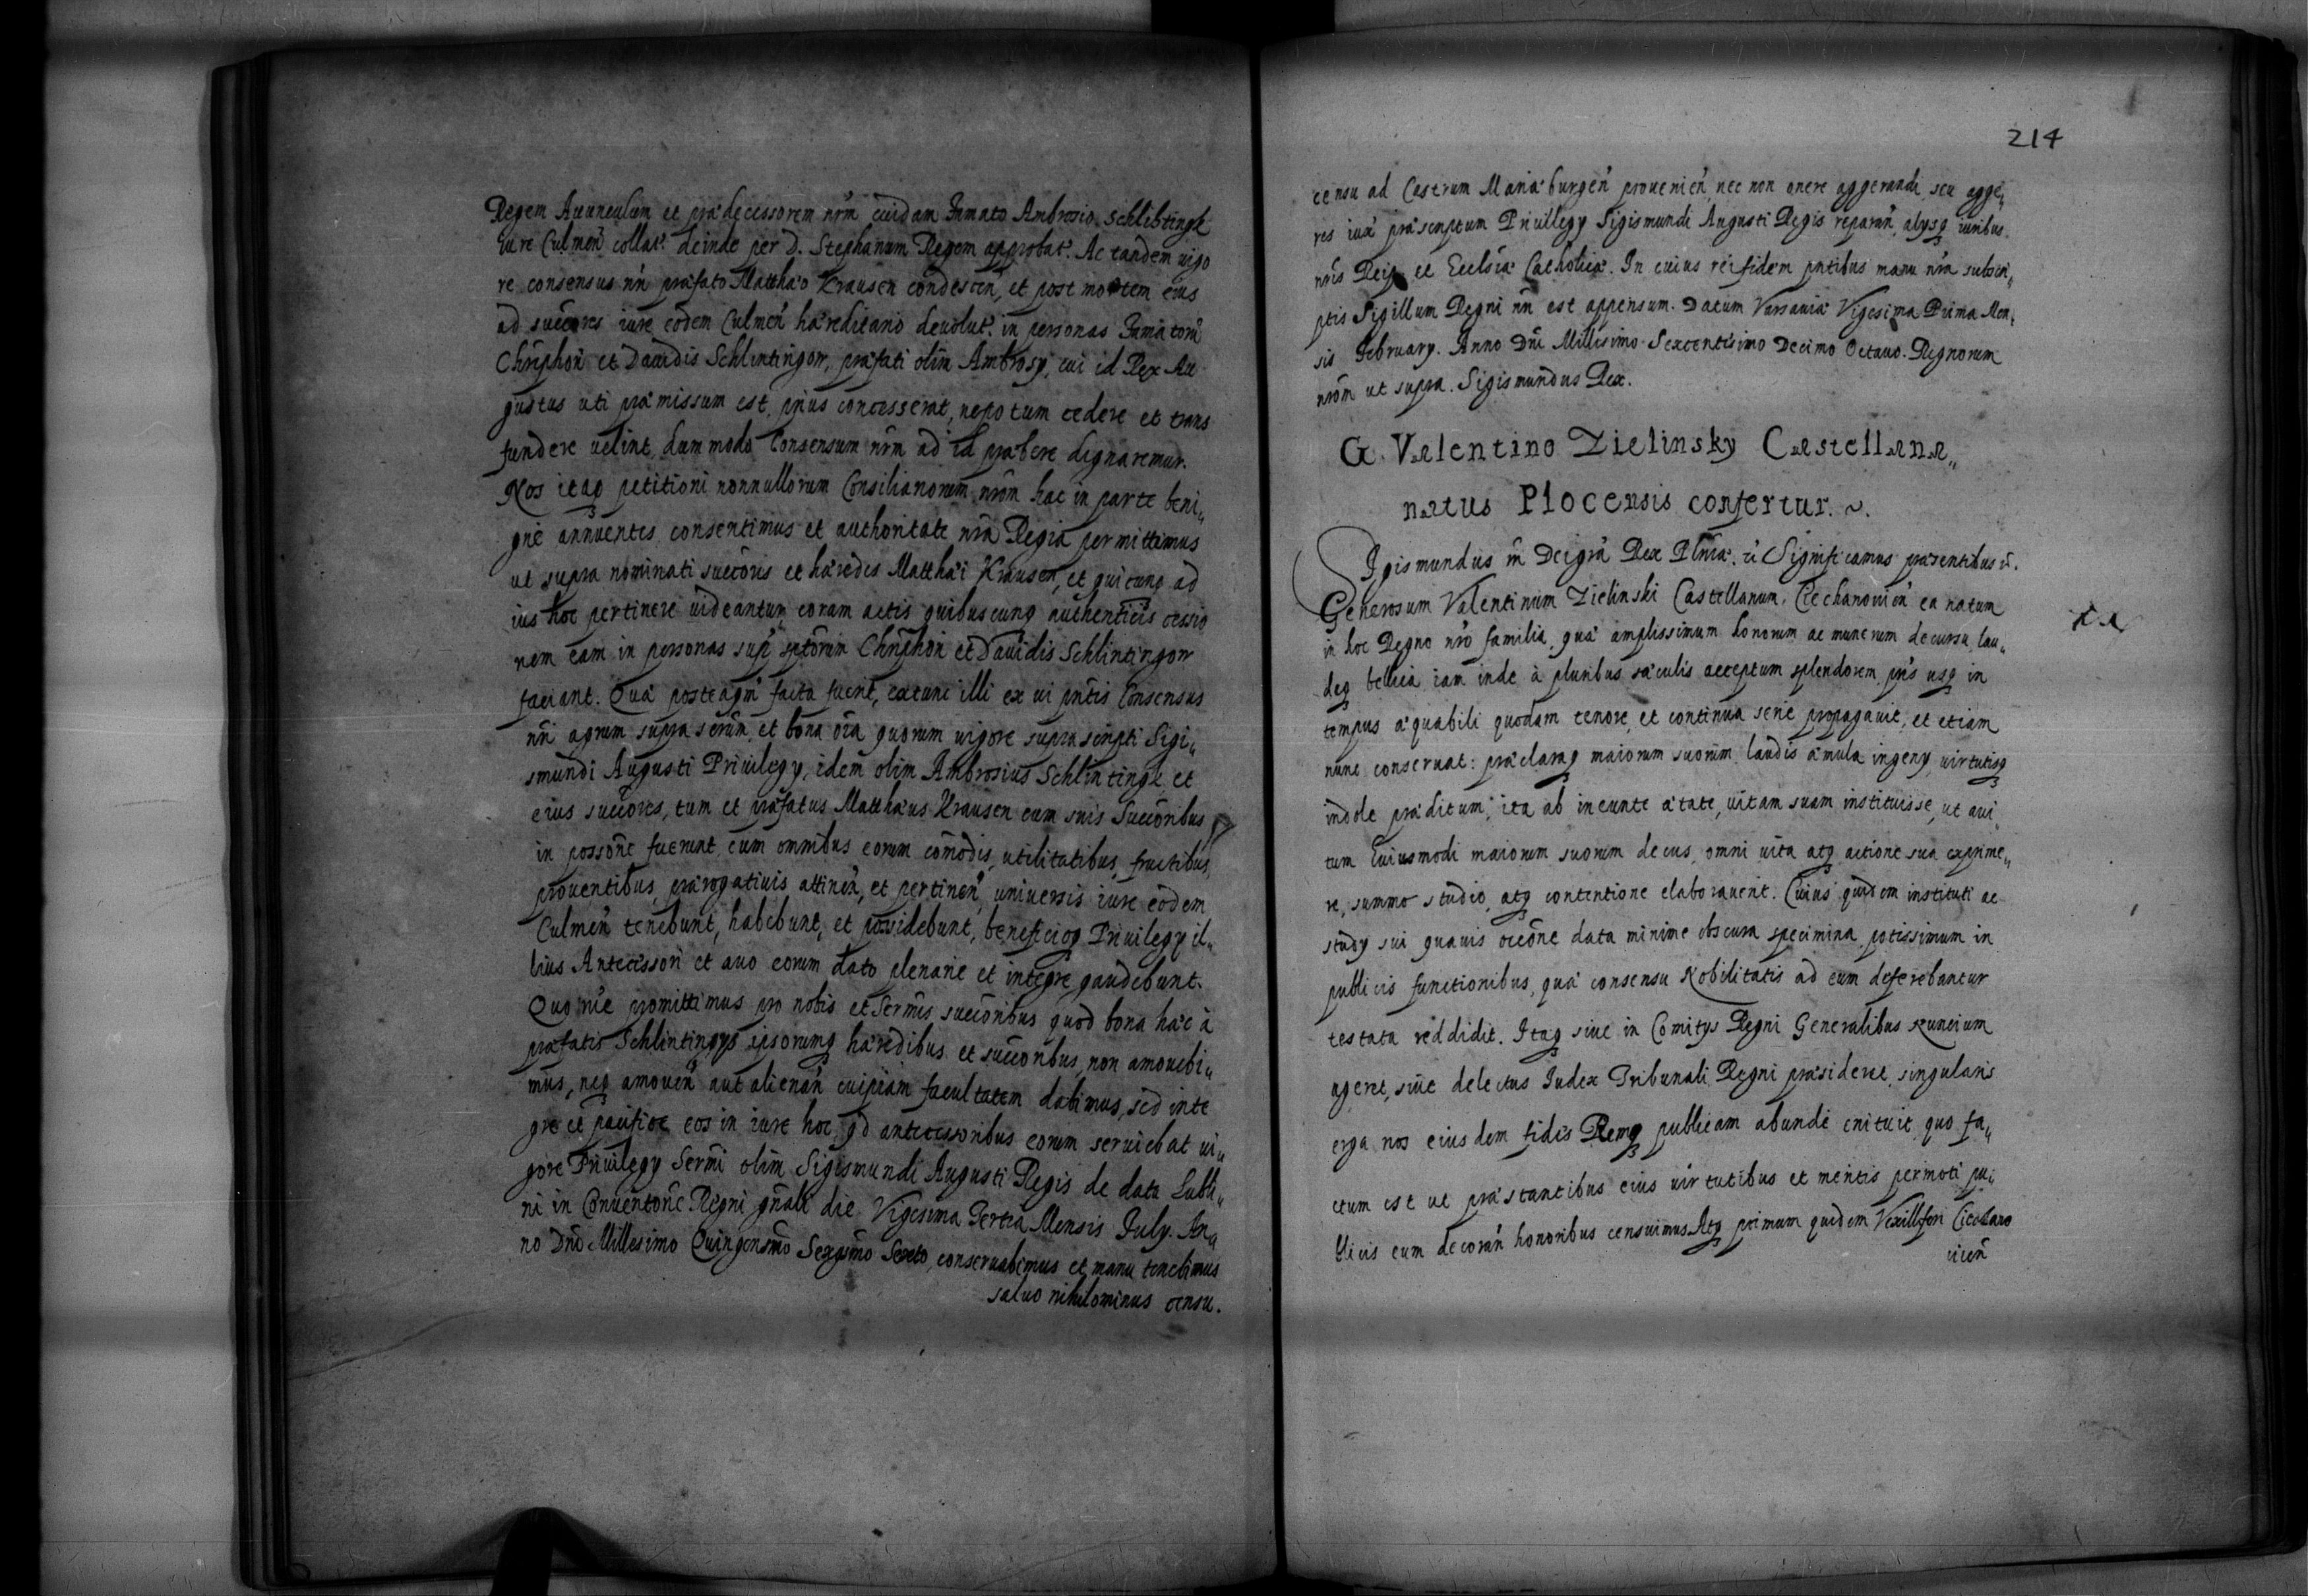 Regem Auunculum et prædecessorem nrm̃ cuidam Famato Ambrosio Schlibtingk
iure Culmeñ collat: deinde per D. Stephanum Regem approbat: Ac tandem uigo
re consensus nr̃i præfato Matthæo Krausen condescen, et post mortem eius
ad succores iure eodem Culmeñ hæreditario deuolut: in personas Famatorũ
Chrĩphori et Dauidis Schlintingow, præfati olim Ambrosy, cui id Rex Au
gustus uti præmissum est, prius concesserat, nepotum cedere et trans
fundere uelint, dummodo Consensum nrm̃ ad id præbere dignaremur.
Nos itaq petitioni nonnullorum Consiliariorum nrõm hac in parte beni„
gne annuentes, consentimus et authoritate nrã Regia permittimus
ut supra nominati succõres et hæredes Matthæi Krausen, et quicunq ad
ius hoc pertinere uideantur, coram actis quibuscunq authenticis cessio
nem eam in personas supˢcptõrum Chrĩphori et Dauidis Schlintingow
faciant. Quæ posteaqm̃ facta fuerit, extunc illi ex ui pñtis Consensus
nr̃i agrum supra scrĩm, et bona oĩa quorum uigore suprascripti Sigi„
smundi Augusti Priuilegy, idem olim Ambrosius Schlintingk et
eius succõres, tum et præfatus Matthæus Krausen cum suis Succõribus
in possõne fuerunt, cum omnibus eorum comõdis, utilitatibus, fructibus,
prouentibus, prærogatiuis attineñ, et pertineñ, uniuersis iure eodem
Culmeñ tenebunt, habebunt, et possidebunt, beneficioq Priuilegy il„
lius Antecessori et auo eorum dato plenarie et integre gaudebunt.
Quo nr̃e promittimus pro nobis et Sermis succõribus quod bona hæc à
præfatis Schlintingys ipsorumq hæredibus et succõribus, non amouebi„
mus, neq amoueñ aut alienañ cuipiam facultatem dabimus, sed inte
gre et pacifice eos in iure hoc, qd antecessoribus eorum seruiebat ui„
gore Priuilegy Sermi olim Sigismundi Augusti Regis de data Lubli„
ni in Conuentõne Regni gñali die Vigesima Tertia Mensis July. An„
no Dnĩ Millesimo Quingensmõ Sexagsmõ Sexto, conseruabimus et manu tenebimus
saluo nihilominus censu.
214
censu ad Castrum Mariæburgeñ prouenieñ, nec non onere aggerandi, seu agge„
res iuxᵃ præscriptum Priuillegy Sigismundi Augusti Regis reparañ, alysq iuribus
nrĩs Reip et Ecclsiæ Catholicæ. In cuius rei fidem pñtibus manu nrã subscri„
ptis Sigillum Regni nr̃i est appensum. Datum Varsauiæ Vigesima Prima Men„
sis February. Anno Dnĩ Millesimo Sexcentesimo Decimo Octauo. Regnorum
nrõm ut supra. Sigismundus Rex.
G. Valentino Zielinsky Castellana„
natus Plocensis confertur. ~.
Sigismundus III Dei grã Rex Plniæ &c Significamus præsentibus &c.
Generosum Valentinum Zielinski Castellanum Ciechanouieñ ea natum
in hoc Regno nrõ familia, quæ amplissimum honorum ac munerum decursu, lau„
deq bellica iam inde à pluribus sæculis acceptum splendorem, prs̃ usq in
tempus æquabili quodam tenore, et continua serie propagauit, et etiam
nunc conseruat: præclaraq maiorum suorum laudis æmula ingeny, uirtutisq
indole præditum; ita ab ineunte ætate, uitam suam instituisse, ut aui„
tum huiusmodi maiorum suorum decus, omni uita atq actione sua exprime„
re, summo studio, atq contentione elaborauerit. Cuius quidem instituti ac
study sui quauis occõne data minime obscura specimina, potissimum in
publicis functionibus, quæ consensu Nobilitatis ad eum deferebantur
testata reddidit. Itaq siue in Comitys Regni Generalibus Nuncium
ageret, siue delectus Iudex Tribunali Regni præsideret, singularis
erga nos eiusdem fides Remq publicam abunde enituit, quo fa„
ctum est ut præstantibus eius uirtutibus et meritis permoti pu„
blicis eum decorañ honoribus censuimus. Atq primum quidem Vexilliferi Ciechano
uieñ